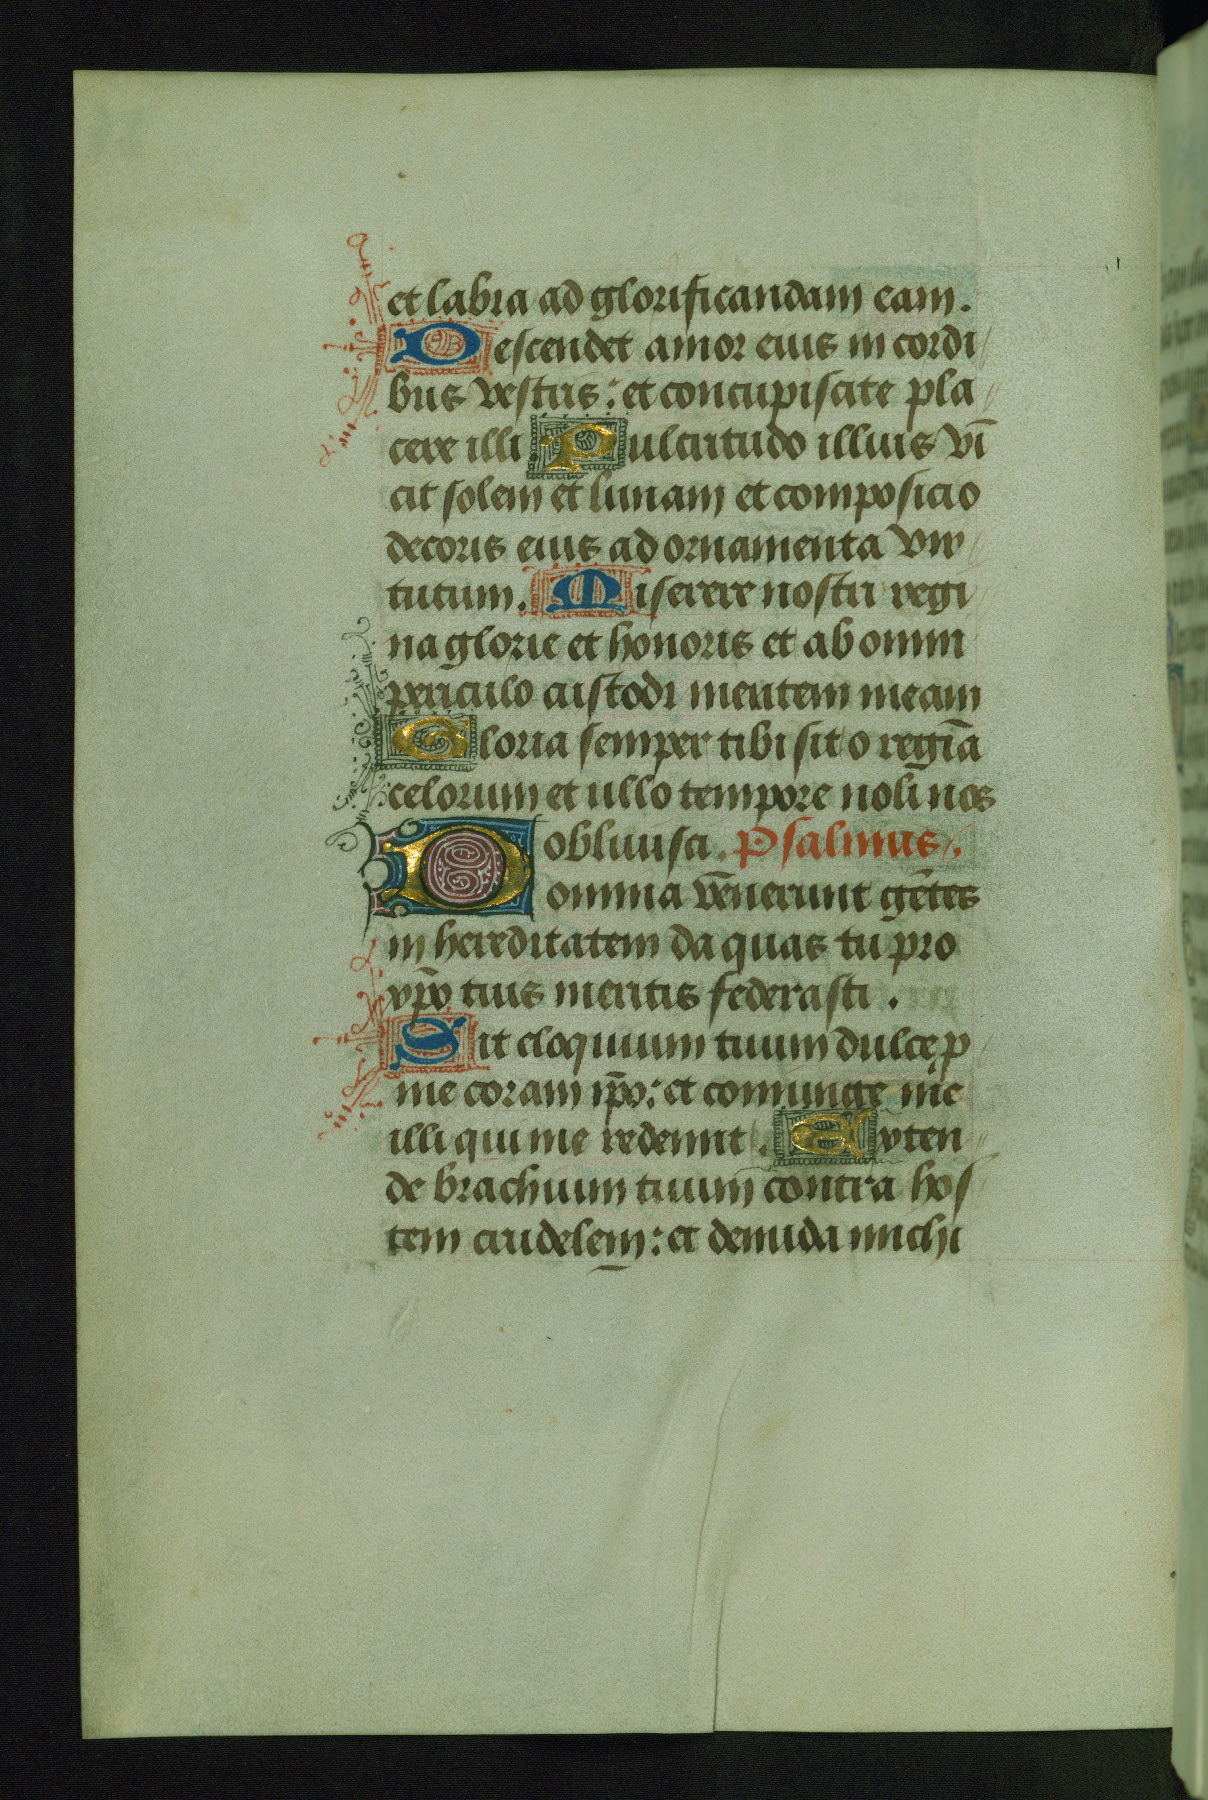 et labra ad glorificandam eam.
Descendet amor eius in cordi
bus vestris: et concupiscite pla
cere illi. Pulcritudo illius vī
cit solem et lunam et composicio
decoris eius ad ornamenta vir
tutum. Miserere nostri regi
na glorie et honoris et ab omni
periculo custodi mentem meam
Gloria semper tibi sit o regīa
celorum et ullo tempore noli nos
obliuisci. Psalmus.
Domina vēnerunt gētes
in hereditatem da quas tu pro
xp̄o tuis meritis federasti.
Sit eloquium tuum dulce p
me coram ip̄o: et coniunge me
illi qui me redemit. Exten
de brachium tuum contra hos
tem crudelem: et denuda michi